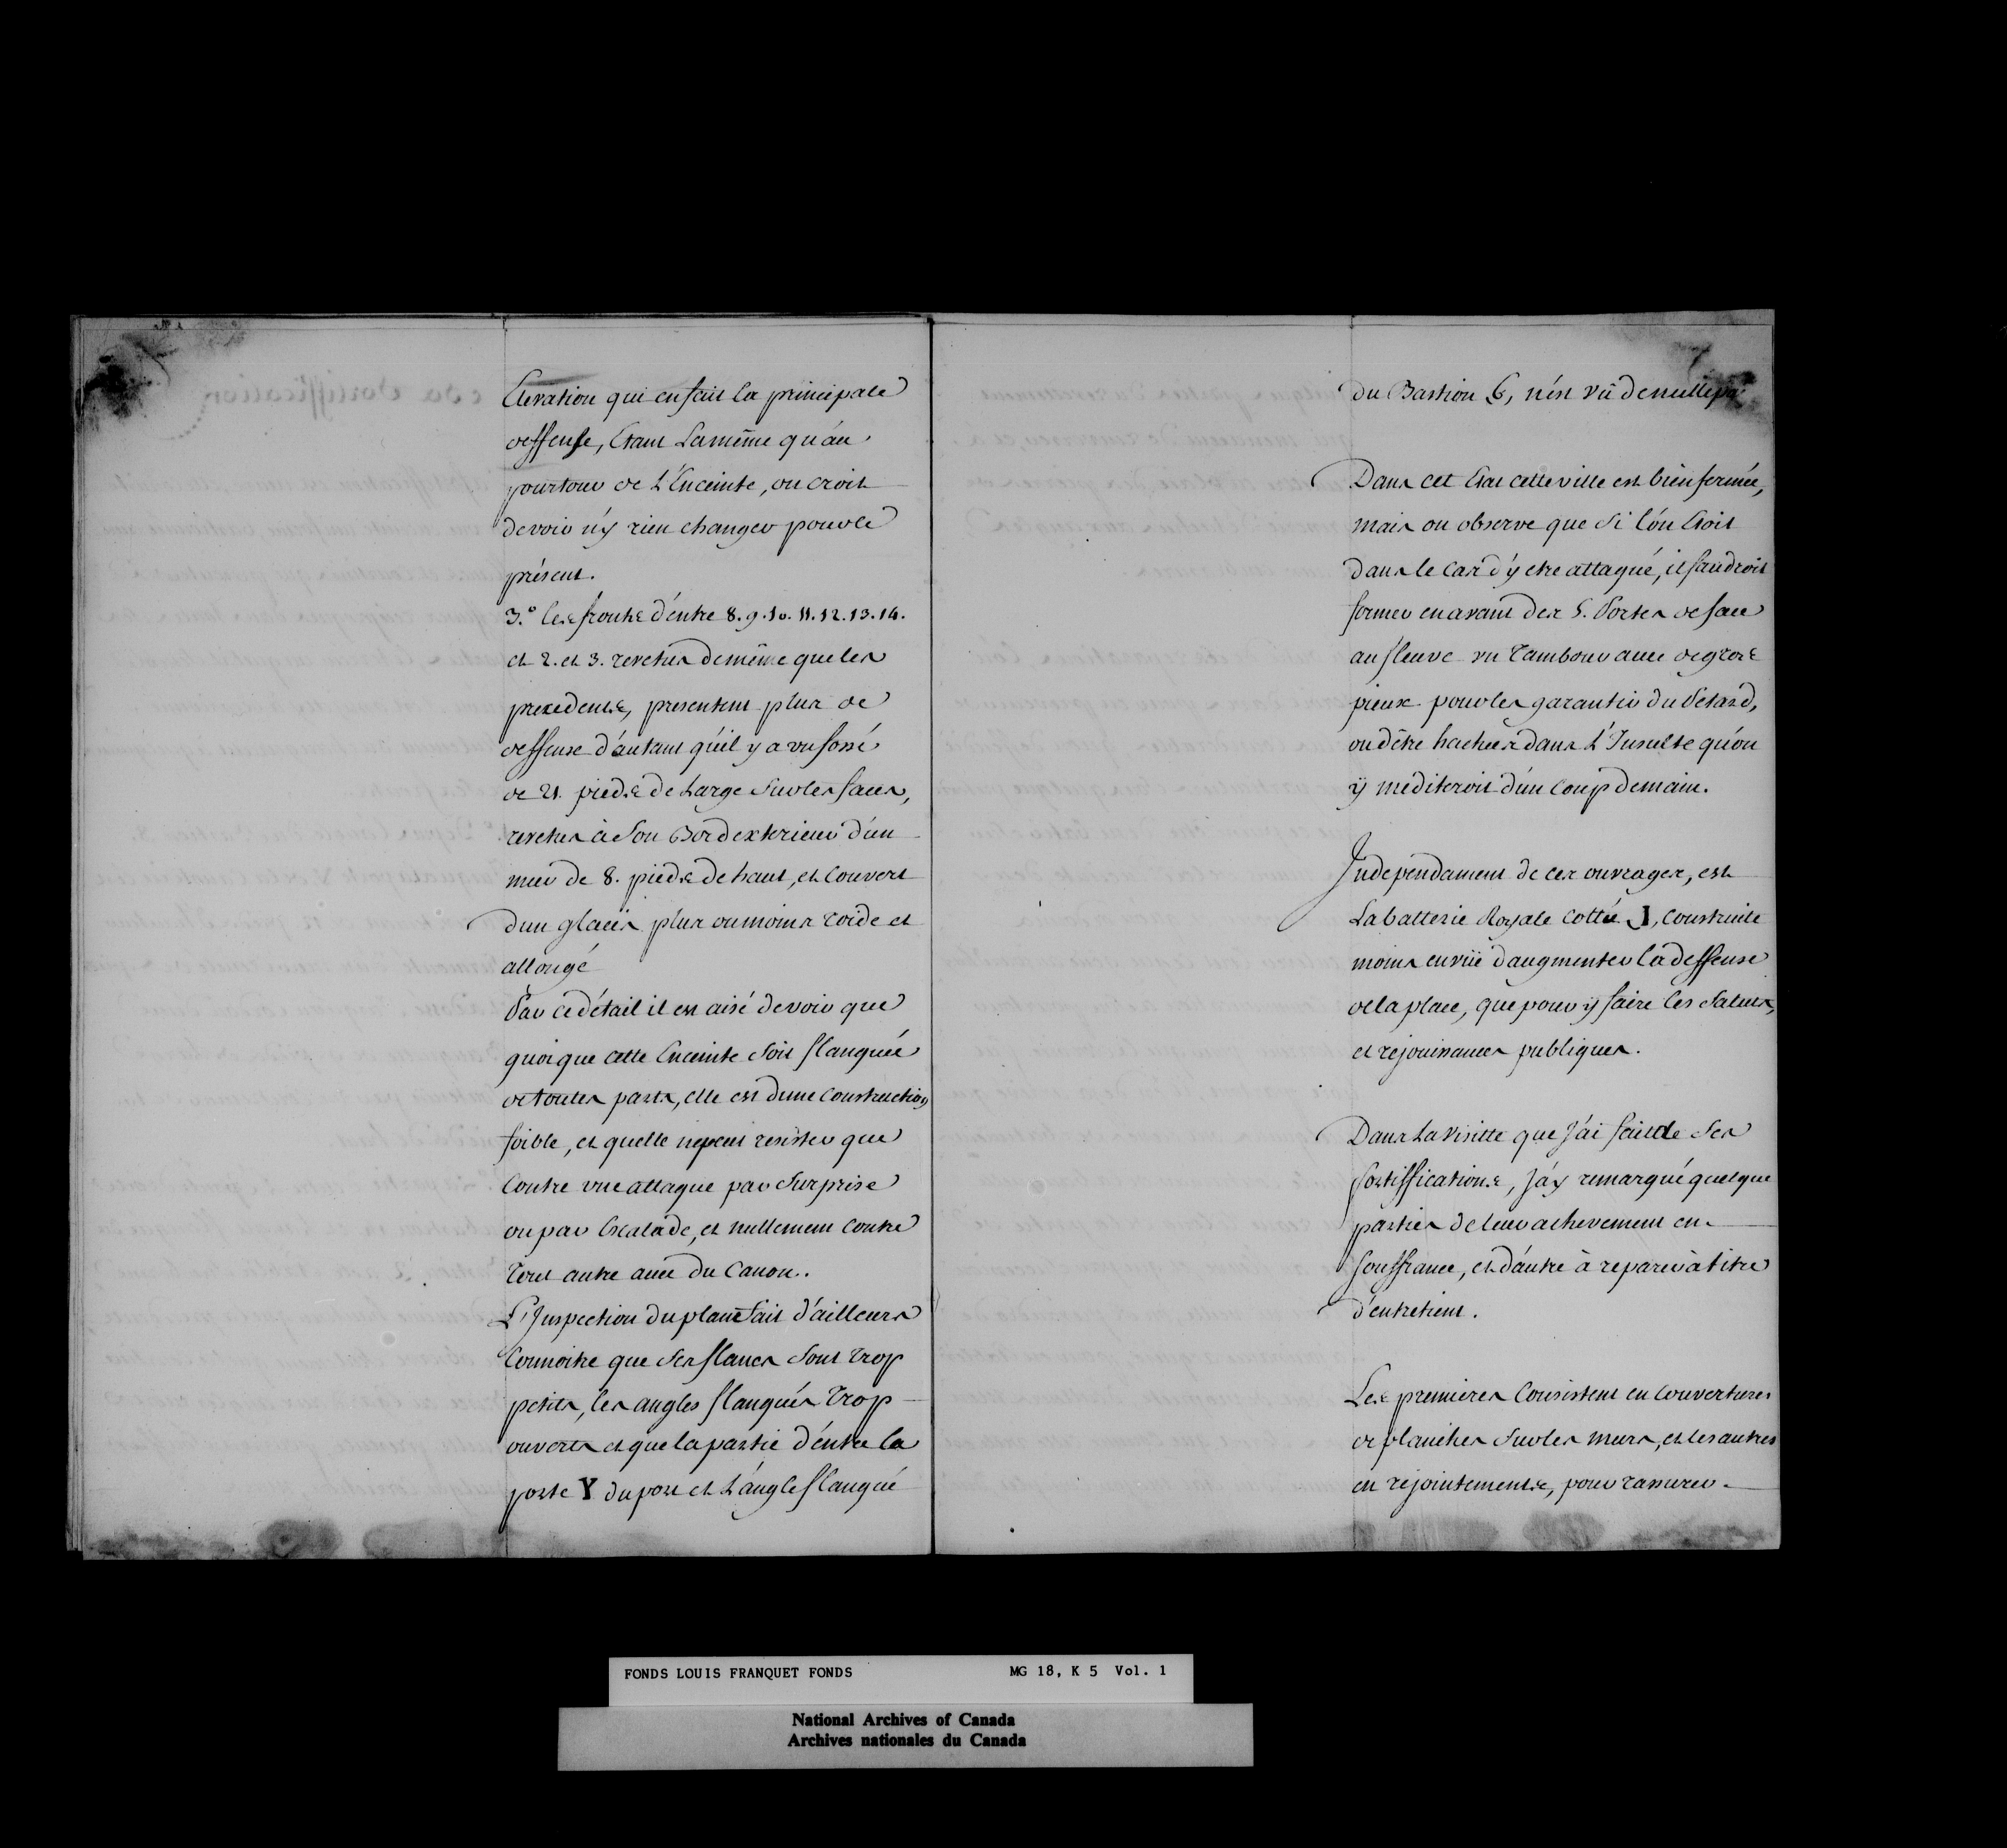 Elevation qui en fait la principale
deffense, Etant La même qu'au
pourtour de L'Enceinte, on croit
devoir n'y rien changer pour le
présent.
3.° les fronts d'entre 8. 9. 10. 11. 12. 13. 14.
et 2. et 3. revetus de même que les
precedents, presentent plus de
deffense d'autant qu'il y a un fossé
de 21. pieds de Large Sur les faces,
revetus à Son Bord exterieur d'un
mur de 8. pieds de haut, et Couvert
d'un glacis plus ou moins roide et
allongé
Par ce détail il est aisé de voir que
quoique cette Enceinte Soit flanquée
de toutes parts, elle est d'une Construction
foible, et quelle ne peut resister que
Contre une attaque par Surprise
ou par Escalade, et nullement Contre
tout autre avec du Canon.
L'Inspection du plan fait d'ailleurs
Connoitre que Ses flancs Sont trop
petits, les angles flanqués trop
ouverts et que la partie d'entre la
porte Y du port et L'angle flanqué
7
du Bastion 6, n'est vû de nulle part
Dans cet Etat cette ville est bien fermée,
mais on observe que Si l'on Etoit
dans le Cas d'y etre attaqué, il faudroit
former en avant des 5. Portes de face
au fleuve un Tambour avec de gros
pieux pour les garantir du Petard,
ou d'être hachées dans L'Insulte qu'on
ÿ mediteroit d'un Coup de main.
Independament de ces ouvrages, est
La batterie Royale Cottée J, Construite
moins en vüe d'augmenter la deffense
de la place, que pour ÿ faire les Saluts,
et rejouissances publiques.
Dans La visitte que J'ai fait de Ses
fortiffications, J'ay remarqué quelque
parties de leur achevement en
Souffrance, et d'autre à reparer à titre
d'entretient.
Les premieres Consistent en Couvertures
de planches Sur les murs, et les autres
en rejointements, pour rassurer
FONDS LOUIS FRANQUET FONDS MG 18, K 5 Vol. 1
National Archives of Canada
Archives nationales du Canada